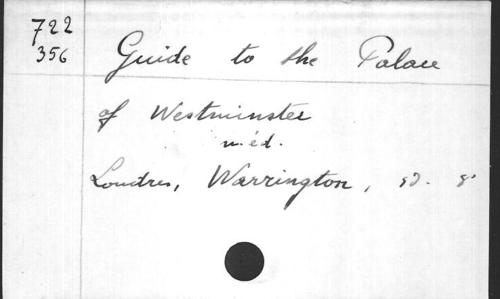 722
356
Guide to the Palace
of Westminster
n. éd.
Londres, Warrington, sd. 8°